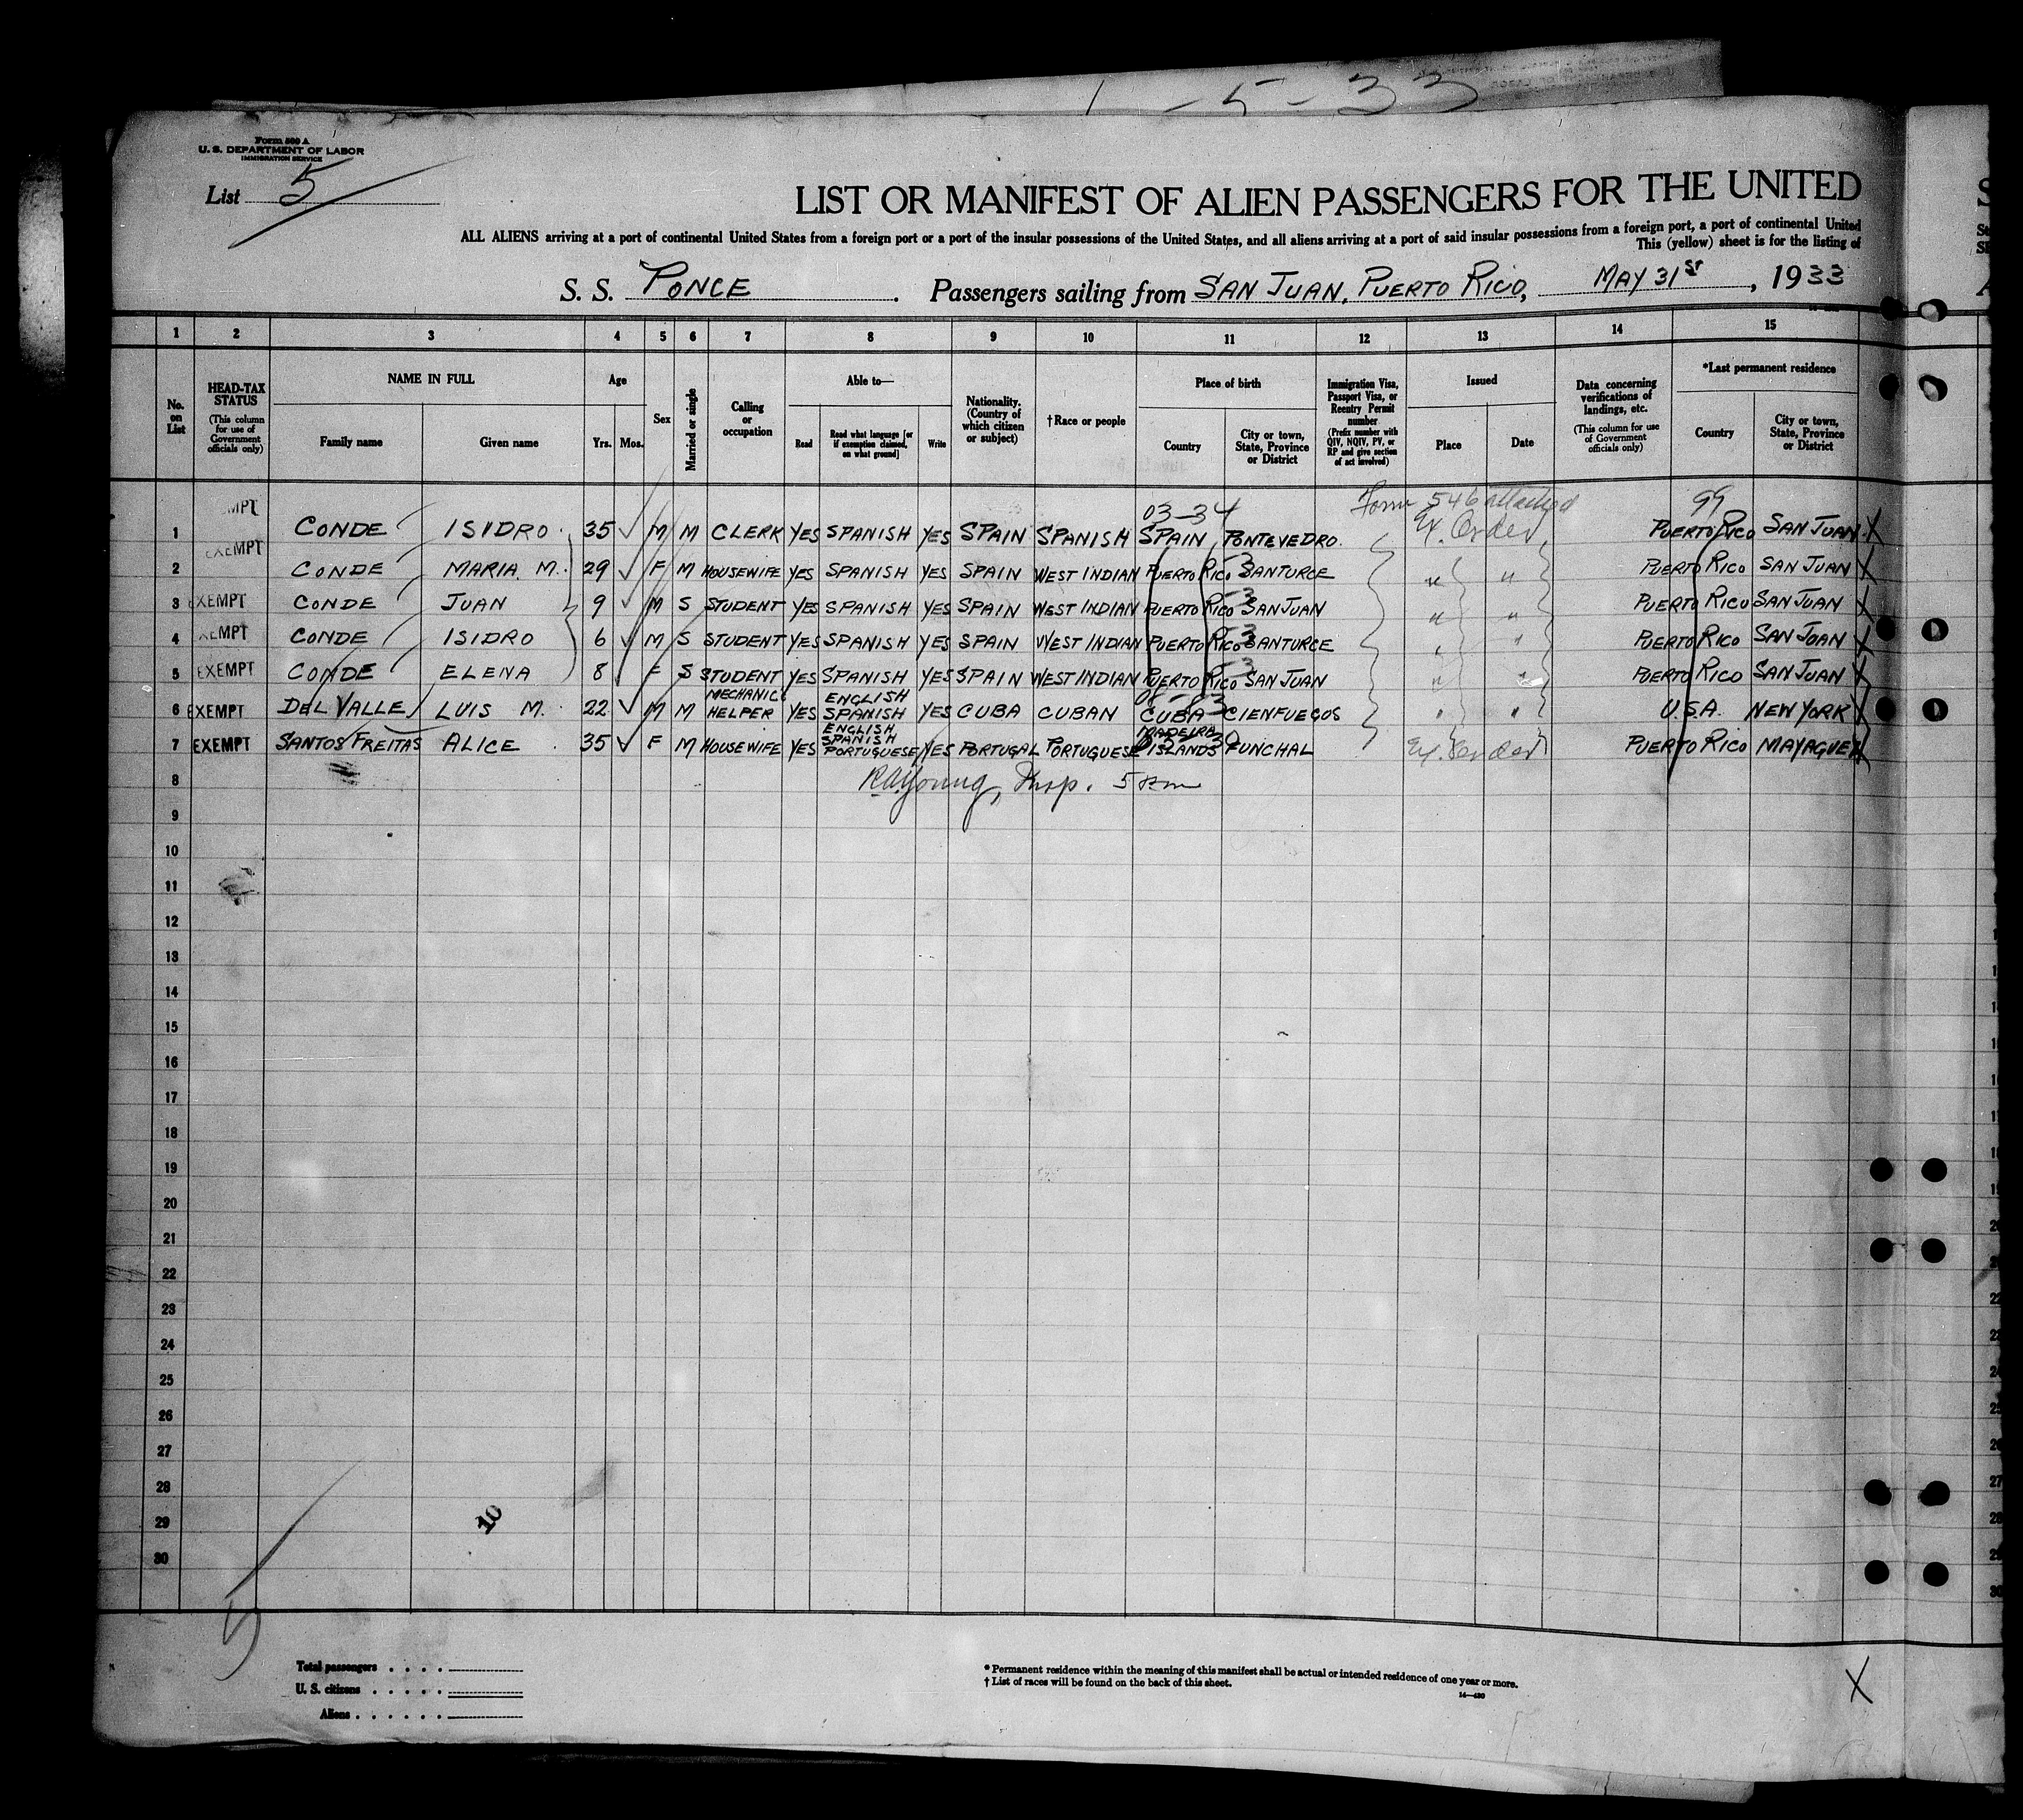 1-5-33
Form 500 A
U. S. DEPARTMENT OF LABOR
IMMIGRATION SERVICE
List 5
LIST OR MANIFEST OF ALIEN PASSENGERS FOR THE UNITED
ALL ALIENS arriving at a port of continental United States from a foreign port or a port of the insular possessions of the United States, and all aliens arriving at a port of said insular possessions from a foreign port, a port of continental United
This (yellow) sheet is for the listing of
S. S. PONCE. Passengers sailing from SAN JUAN, PUERTO RICO, MAY 31ST, 1933
1 2 3 4 5 6 7 8 9 10 11 12 13 14 15
No. on List
HEAD-TAX STATUS (This column for use of Government officials only)
NAME IN FULL Family name Given name
Age Yrs. Mos.
Sex
Married or single
Calling or occupation
Able to— Read Read what language [or if exemption claimed, on what ground] Write
Nationality. (Country of which citizen or subject)
†Race or people
Place of birth Country City or town, State, Province or District
Immigration Visa, Passport Visa, or Reentry Permit number (Prefix number with QIV, NQIV, PV, or RP and give section of act involved)
Issued Place Date
Data concerning verifications of landings, etc. (This column for use of Government officials only)
*Last permanent residence Country City or town, State, Province or District
MPT 03-34 Form 546 attached 99
1 CONDE ISIDRO 35 M M CLERK YES SPANISH YES SPAIN SPANISH SPAIN PONTEVEDRO. Ex. Order PUERTO RICO SAN JUAN X
EXEMPT
2 CONDE MARIA M. 29 F M HOUSEWIFE YES SPANISH YES SPAIN WEST INDIAN PUERTO RICO SANTURCE " " PUERTO RICO SAN JUAN X
3 EXEMPT CONDE JUAN 9 M S STUDENT YES SPANISH YES SPAIN WEST INDIAN PUERTO RICO SAN JUAN " " PUERTO RICO SAN JUAN X
4 EXEMPT CONDE ISIDRO 6 M S STUDENT YES SPANISH YES SPAIN WEST INDIAN PUERTO RICO SANTURCE " " PUERTO RICO SAN JUAN X
5 EXEMPT CONDE ELENA 8 F S STUDENT YES SPANISH YES SPAIN WEST INDIAN PUERTO RICO SAN JUAN " " PUERTO RICO SAN JUAN X
6 EXEMPT DEL VALLE LUIS M. 22 M M MECHANIC HELPER YES ENGLISH SPANISH YES CUBA CUBAN CUBA CIENFUEGOS " " U.S.A. NEW YORK X
7 EXEMPT SANTOS FREITAS ALICE 35 F M HOUSEWIFE YES ENGLISH SPANISH PORTUGUESE YES PORTUGAL PORTUGUESE MADEIRA ISLANDS FUNCHAL Ex. Order PUERTO RICO MAYAGUEZ X
8 RA Young, Insp.
9
10
11
12
13
14
15
16
17
18
19
20
21
22
23
24
25
26
27
28
29 10
30
5
Total passengers . . . .
U. S. citizens . . . . .
Aliens . . . . . .
* Permanent residence within the meaning of this manifest shall be actual or intended residence of one year or more.
† List of races will be found on the back of this sheet.
X